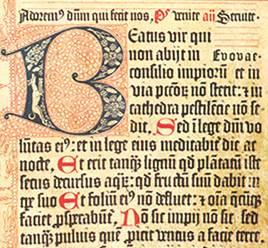 Adorem⁹ dūm qui fecit nos, p̄s Venite añ Seruite.
Beatus vir qui
non abijt in Evovae
consilio impiorū et in
via pc̄ōꝝ nō stetit: ⁊ in
cathedra pestilēcie nō se⸗
dit. Sed ī lege dn̄i vo⸗
lūtas ei⁹: et in lege eius meditabit̄ die ac
nocte. Et erit tanq̄ lignū qd̄ plātatū ē
secus decursus aq̄ꝝ: qd̄ fructū suū dabit ī
tp̄e suo Et foliū ei⁹ nō defluet: ⁊ oīa q̄cūq̄
faciet ꝓsꝑabūt̄. Nō sic impij nō sic: sed
tanq̄ puluis quē ꝓicit ventus a facie terre.